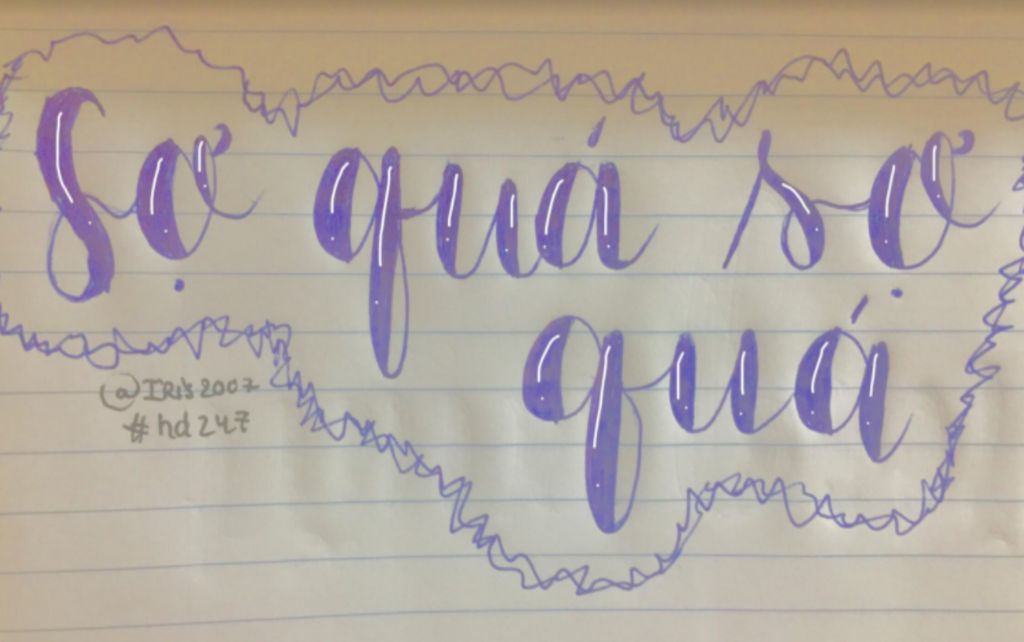 Sợ quá sợ
quá
@IRis2007
#hd247